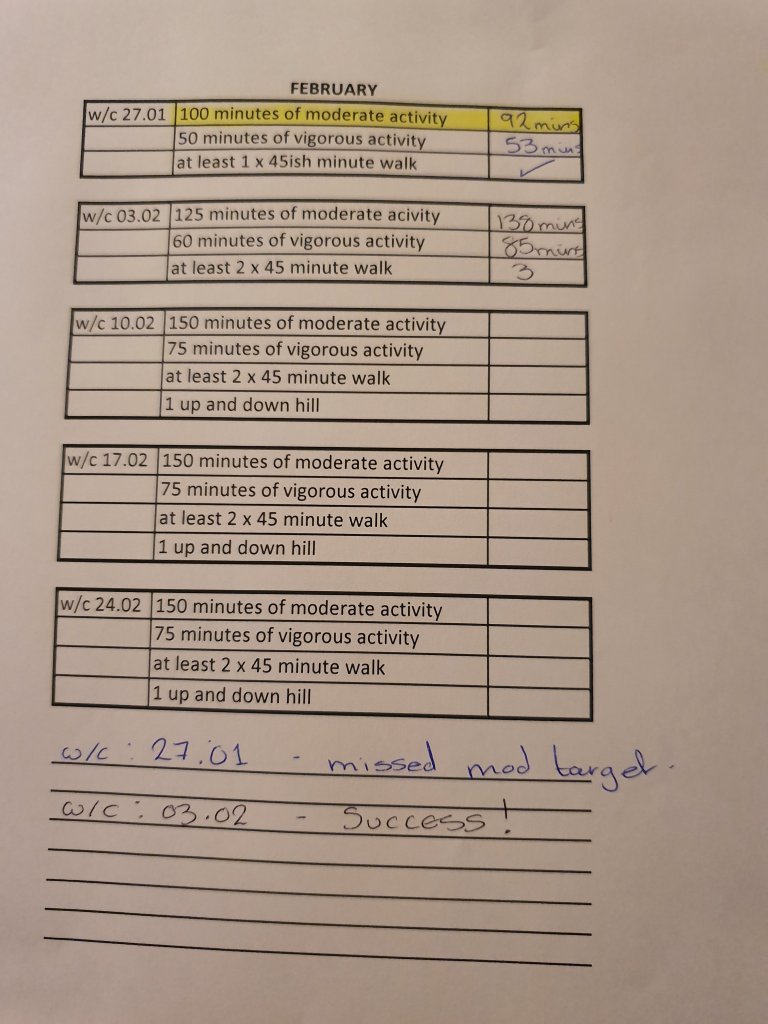 FEBRUARY
w/c 27.01 100 minutes of moderate activity 92 mins
50 minutes of vigorous activity 53 mins
at least 1 x 45ish minute walk ✓
w/c 03.02 125 minutes of moderate acivity 138 mins
60 minutes of vigorous activity 85 mins
at least 2 x 45 minute walk 3
w/c 10.02 150 minutes of moderate activity
75 minutes of vigorous activity
at least 2 x 45 minute walk
1 up and down hill
w/c 17.02 150 minutes of moderate activity
75 minutes of vigorous activity
at least 2 x 45 minute walk
1 up and down hill
w/c 24.02 150 minutes of moderate activity
75 minutes of vigorous activity
at least 2 x 45 minute walk
1 up and down hill
w/c : 27.01 - missed mod target.
w/c : 03.02 - Success!